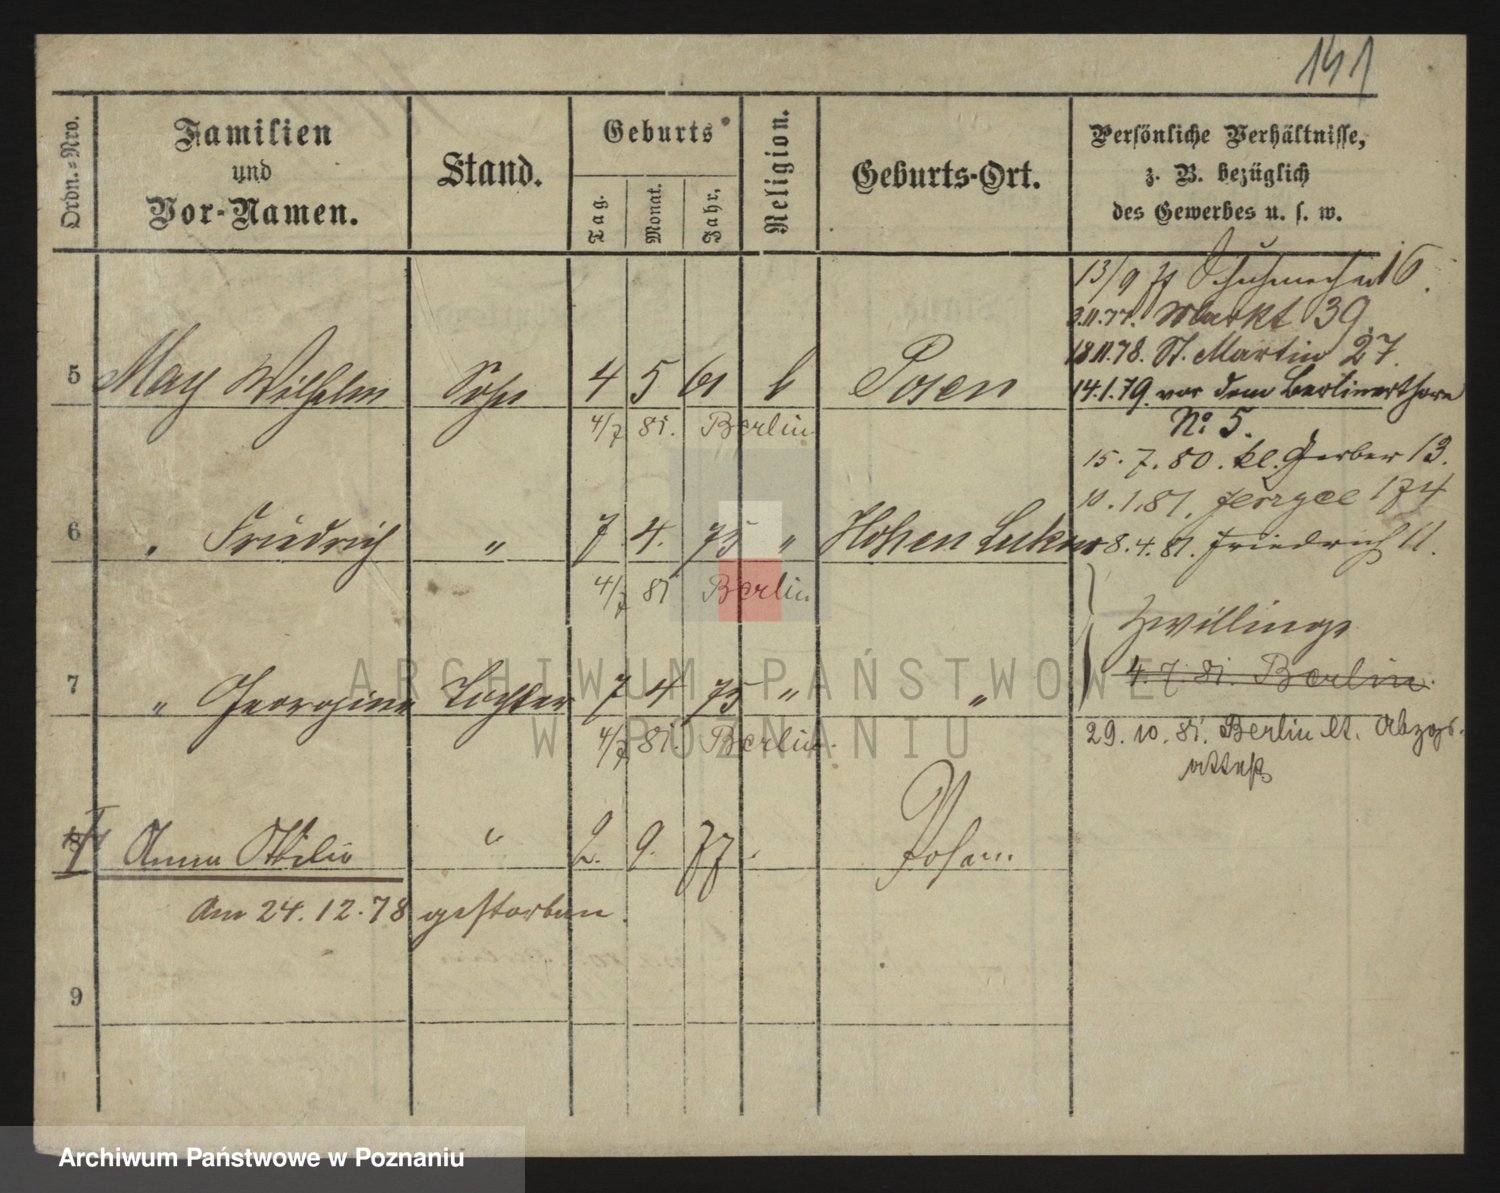 141
Ordn.-Nro.
Familien
und
Vor-Namen.
Stand.
Geburts
Tag.
Monat.
Jahr.
Religion.
Geburts-Ort.
Persönliche Verhältnisse,
z. B. bezüglich
des Gewerbes u. s. w.
13/9 Schuhmacher 16.
3.11.77. Markt 39.
18 11.78. St. Martin 27.
5 May Wilhelm Sohn 4 5 61 Posen
14.1.79. vor dem Berlinerthore
No 5.
4/7 81. Berlin
15.7.80. kl. Gerber 13.
10.1.81. 174
6 " Friedrich " 7 4. 75 " Hohen
8.4.81. Friedrich 11.
4/7 81 Berlin
Zwillinge
4.7.81. Berlin.
7 " Georgine Tochter 7 4 75 " "
4/7 81. Berlin.
29.10.81. Berlin lt. Abzgs.
attest
8 Anna Ottilie " 2. 9. 77. Posen.
Am 24.12.78 gestorben.
9
ARCHIWUM PAŃSTWOWE
W POZNANIU
Archiwum Państwowe w Poznaniu